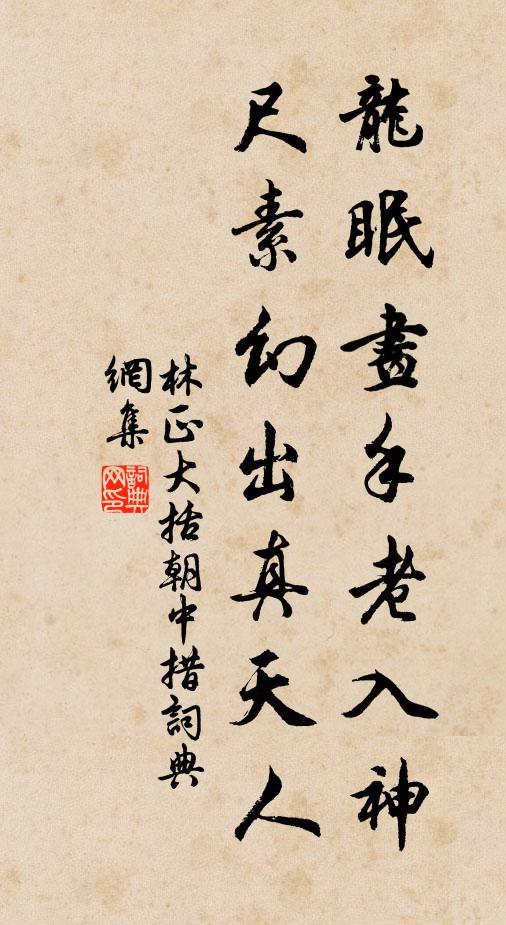 龍眠畫手老入神
尺素幻出真天人
林正大括朝中措詞典
網集
詞典網印